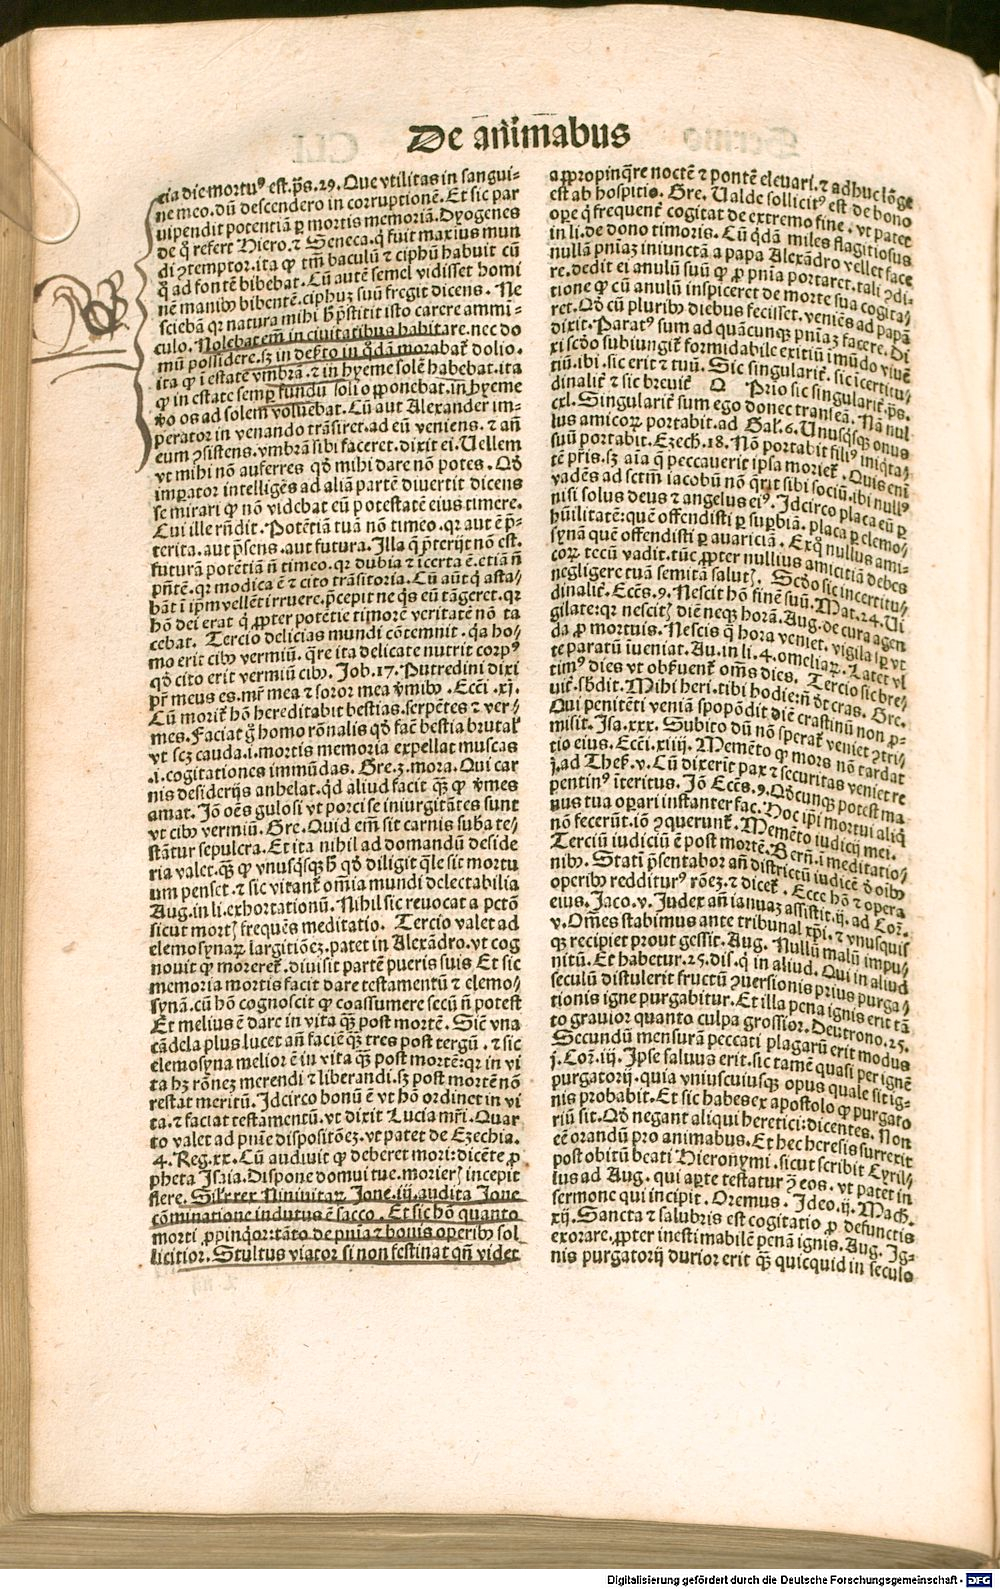 De āni̅m̅abus
cia die mortuꝰ est. p̄s. 29. Que vtilitas in sangui⸗
ne meo. dū descendero in corruptionē. Et sic par
uipendit potentiā ꝑ mortis memoriā. Dyogenes
de q̊ refert Hiero. ⁊ Seneca. q̊ fuit maxius mun
di ꝯtemptor. ita ꝙ tm̄ baculū ⁊ ciphū habuit cū
q̊ ad fontē bibebat. Cū autē semel vidisset homi
nē manibꝰ bibentē. ciphuꝫ suū fregit dicens. Ne
sciebā qꝛ natura mihi h̄ p̄stitit isto carere ammi⸗
culo. Nolebat em̄ in ciuitatibus habitare. nec do
mū possidere. sꝫ in dek̄to in q̊dā morabat᷑ dolio.
ita ꝙ ī estate vmbrā. ⁊ in hyeme solē habebat. ita
ꝙ in estate semꝑ fundū soli opponebat. in hyeme
ꝟo os ad solem voluebat. Cū aut Alexander im⸗
perator in venando trāsiret. ad eū veniens. ⁊ añ
eum ꝯsistens. vmbrā sibi faceret. dixit ei. Uellem
vt mihi nō auferres qd̄ mihi dare nō potes. Qd̄
imꝑator intelligēs ad aliā partē diuertit dicens
se mirari ꝙ nō videbat eū potestatē eius timere.
Cui ille rñdit. Potētiā tuā nō timeo. qꝛ aut ē p̄⸗
terita. aut p̄sens. aut futura. Illa q̄ p̄terijt nō est.
futurā potētiā ñ timeo. qꝛ dubia ⁊ īcerta ē. etiā ñ
pñtē. qꝛ modica ē ⁊ cito trāsitoria. Cū aūt q̄ asta⸗
bāt ī ip̄m vellēt irruere. p̄cepit ne q̇s eū tāgeret. qꝛ
hō dei erat q̇ ꝓpter potētie timorē veritatē nō ta
cebat. Tercio delicias mundi cōtemnit. q̇a ho⸗
mo erit cibꝰ vermiū. q̄re ita delicate nutrit corpꝰ
qd̄ cito erit vermiū cibꝰ. Job. 17. Putredini dixi
pr̄ meus es. mr̄ mea ⁊ soror mea ꝟmibꝰ. Ecci̅. xj.
Cū morit᷑ hō hereditabit bestias. serpētes ⁊ ver⸗
mes. Faciat g̊ homo rōnalis qd̄ fac̄ bestia brutal᷑
vt scꝫ cauda. i. mortis memoria expellat muscas
.i. cogitationes immūdas. Gre. 3. mora. Qui car
nis desiderijs anhelat. q̇d aliud facit qꝫ̄ ꝙ ꝟmes
amat. Jō oēs gulosi vt porci se iniurgitātes sunt
vt cibꝰ vermiū. Gre. Quid em̄ sit carnis sub̄a te⸗
stātur sepulcra. Et ita nihil ad domandū deside
ria valet. qꝫ̄ ꝙ vnusq̇sqꝫ h̄ qd̄ diligit q̄le sit mortu
um penset. ⁊ sic vitant᷑ om̄ia mundi delectabilia
Aug. in li. exhortationū. Nihil sic reuocat a pctō
sicut mortꝭ frequēs meditatio. Tercio valet ad
elemosynaꝝ largitiōeꝫ. patet in Alexādro. vt cog
nouit ꝙ moreret᷑. diuisit partē pueris suis Et sic
memoria mortis facit dare testamentū ⁊ elemo⸗
synā. cū hō cognoscit ꝙ coassumere secū ñ potest
Et melius ē dare in vita qꝫ̄ post mortē. Sic̄ vna
cādela plus lucet añ faciē qꝫ̄ tres post tergū. ⁊ sic
elemosyna melior ē in vita qꝫ̄ post mortē: qꝛ in vi
ta hꝫ rōneꝫ merendi ⁊ liberandi. sꝫ post mortē nō
restat meritū. Idcirco bonū ē vt hō ordinet in vi
ta. ⁊ faciat testamentū. vt dixit Lucia mr̄i. Quar
to valet ad pnīe dispositōeꝫ. vt patet de Ezechia.
4. Reg. xx. Cū audiuit ꝙ deberet mori: dicēte ꝓ
pheta Isaia. Dispone domui tue. morierꝭ incepit
flere. Silr̄ rex Niniuitaꝝ Jone. iij. audita Jone
cōminatione indutus ē sacco. Et sic hō quanto
morti ꝓpinq̇or: tāto de pnīa ⁊ bonis operibꝰ sol
licitior. Stultus viator si non festinat qñ videt
appropinq̄re noctē ⁊ pontē eleuari. ⁊ adhuc lōge
est ab hospitio. Gre. Ualde sollicitꝰ est de bono
oꝑe q̇ frequent᷑ cogitat de extremo fine. vt patet
in li. de dono timoris. Cū q̇dā miles flagitiosus
nullā pniaꝫ iniunctā a papa Alexādro vellet face
re. dedit ei anulū suū ꝙ ꝓ pnīa portaret. tali ꝯdi⸗
tione ꝙ cū anulū inspiceret de morte sua cogita⸗
ret. Qd̄ cū pluribꝰ diebus fecisset. veniēs ad papā
dixit. Paratꝰ sum ad quācunqꝫ pniaꝫ facere. Di
xi scd̄o subiungit᷑ formidabile exitiū īmūdo viuē
tiū. ibi. sic erit ⁊ tuū. Sic singularit᷑. sic īcertitu⸗
dinalit᷑ ⁊ sic breuit᷑ Q Prio sic singularit᷑. p̄s.
cxl. Singularit᷑ sum ego donec transeā. Nā nul
lus amicoꝝ portabit. ad Gal̄. 6. Unusq̇sqꝫ onus
suū portabit. Ezech. 18. Nō portabit filiꝰ iniq̇ta⸗
tē pr̄is. sꝫ aīa q̄ peccauerit ipsa moriet᷑. Quis eni̅
vadēs ad sctm̄ iacobū nō q̄rit sibi sociū. ibi nullꝰ
nisi solus deus ⁊ angelus eiꝰ. Idcirco placa eū ꝑ
hūilitatē: quē offendisti ꝑ suꝑbiā. placa ꝑ elemo⸗
synā quē offendisti ꝑ auariciā. Exq̊ nullus ami⸗
coꝝ tecū vadit. tūc ꝓpter nullius amicitiā debes
negligere tuā semitā salutꝭ. Scd̄o sic incertitu⸗
dinalit᷑. Ecc̄s. 9. Nescit hō finē suū. Mat. 24. Ui
gilate: qꝛ nescitꝭ diē neqꝫ horā. Aug. de cura agen
da ꝓ mortuis. Nescis q̄ hora veniet. vigila ip̄r vt
te paratū iueniat. Au. in li. 4. omeliaꝝ. Latet vl
timꝰ dies vt obẜuent᷑ om̄s dies. Tercio sic bre⸗
uit᷑. sb̄dit. Mihi heri. tibi hodie: ñ ōt cras. Gre.
Qui penitēti veniā spopōdit diē crastinū non ꝓ⸗
misit. Isa. xxx. Subito dū nō sperat᷑ veniet ꝯtri⸗
tio eius. Ecci̅. xiiij. Memēto ꝙ mors nō tardat
j. ad Thes̄. v. Cū dixerit pax ⁊ securitas veniet re
pentinꝰ īteritus. Jō Ecc̄s. 9. Qd̄cunqꝫ potest ma
nus tua oꝑari instanter fac. Hoc ip̄i mortui aliq̄
nō fecerūt. iō ꝯquerunt᷑. Memēto iudicij mei.
Terciū iudiciū ē post mortē. Bern̄. ī meditatio⸗
nibꝰ. Statī p̄sentabor añ districtū iudicē ꝺ̄ oibꝰ
operibꝰ redditurꝰ rōeꝫ. ⁊ dicet᷑. Ecce hō ⁊ opera
eius. Jaco. v. Judex añ ianuaꝫ assistit. ij. ad Cor̄.
v. Om̄es stabimus ante tribunal xp̄i. ⁊ vnusquis
qꝫ recipiet prout gessit. Aug. Nullū malū impu⸗
nitū. Et habetur. 25. dis. q̇ in aliud. Qui in aliud
seculū distulerit fructū ꝯuersionis prius purga⸗
tionis igne purgabitur. Et illa pena ignis erit tā
to grauior quanto culpa grossior. Deutrono. 25.
Secundū mensurā peccati plagarū erit modus
j. Cor̄. iij. Ipse saluus erit. sic tamē quasi per ignē
purgatorij. quia vniuscuiusqꝫ opus quale sit ig⸗
nis probabit. Et sic habes ex apostolo ꝙ purgato
riū sit. Qd̄ negant aliqui heretici: dicentes. Non
eē orandū pro animabus. Et hec heresis surrexit
post obitū beati Hieronymi. sicut scribit Cyril⸗
lus ad Aug. qui aꝑte testatur ꝯ̄ eos. vt patet in
sermone qui incipit. Oremus. Ideo. ij. Mach̄.
xij. Sancta ⁊ salubris est cogitatio ꝓ defunctis
exorare. ꝓpter inestimabilē penā ignis. Aug. Ig⸗
nis purgatorij durior erit qꝫ̄ quicquid in seculo
Digitalisierung gefördert durch die Deutsche Forschungsgemeinschaft - DFG